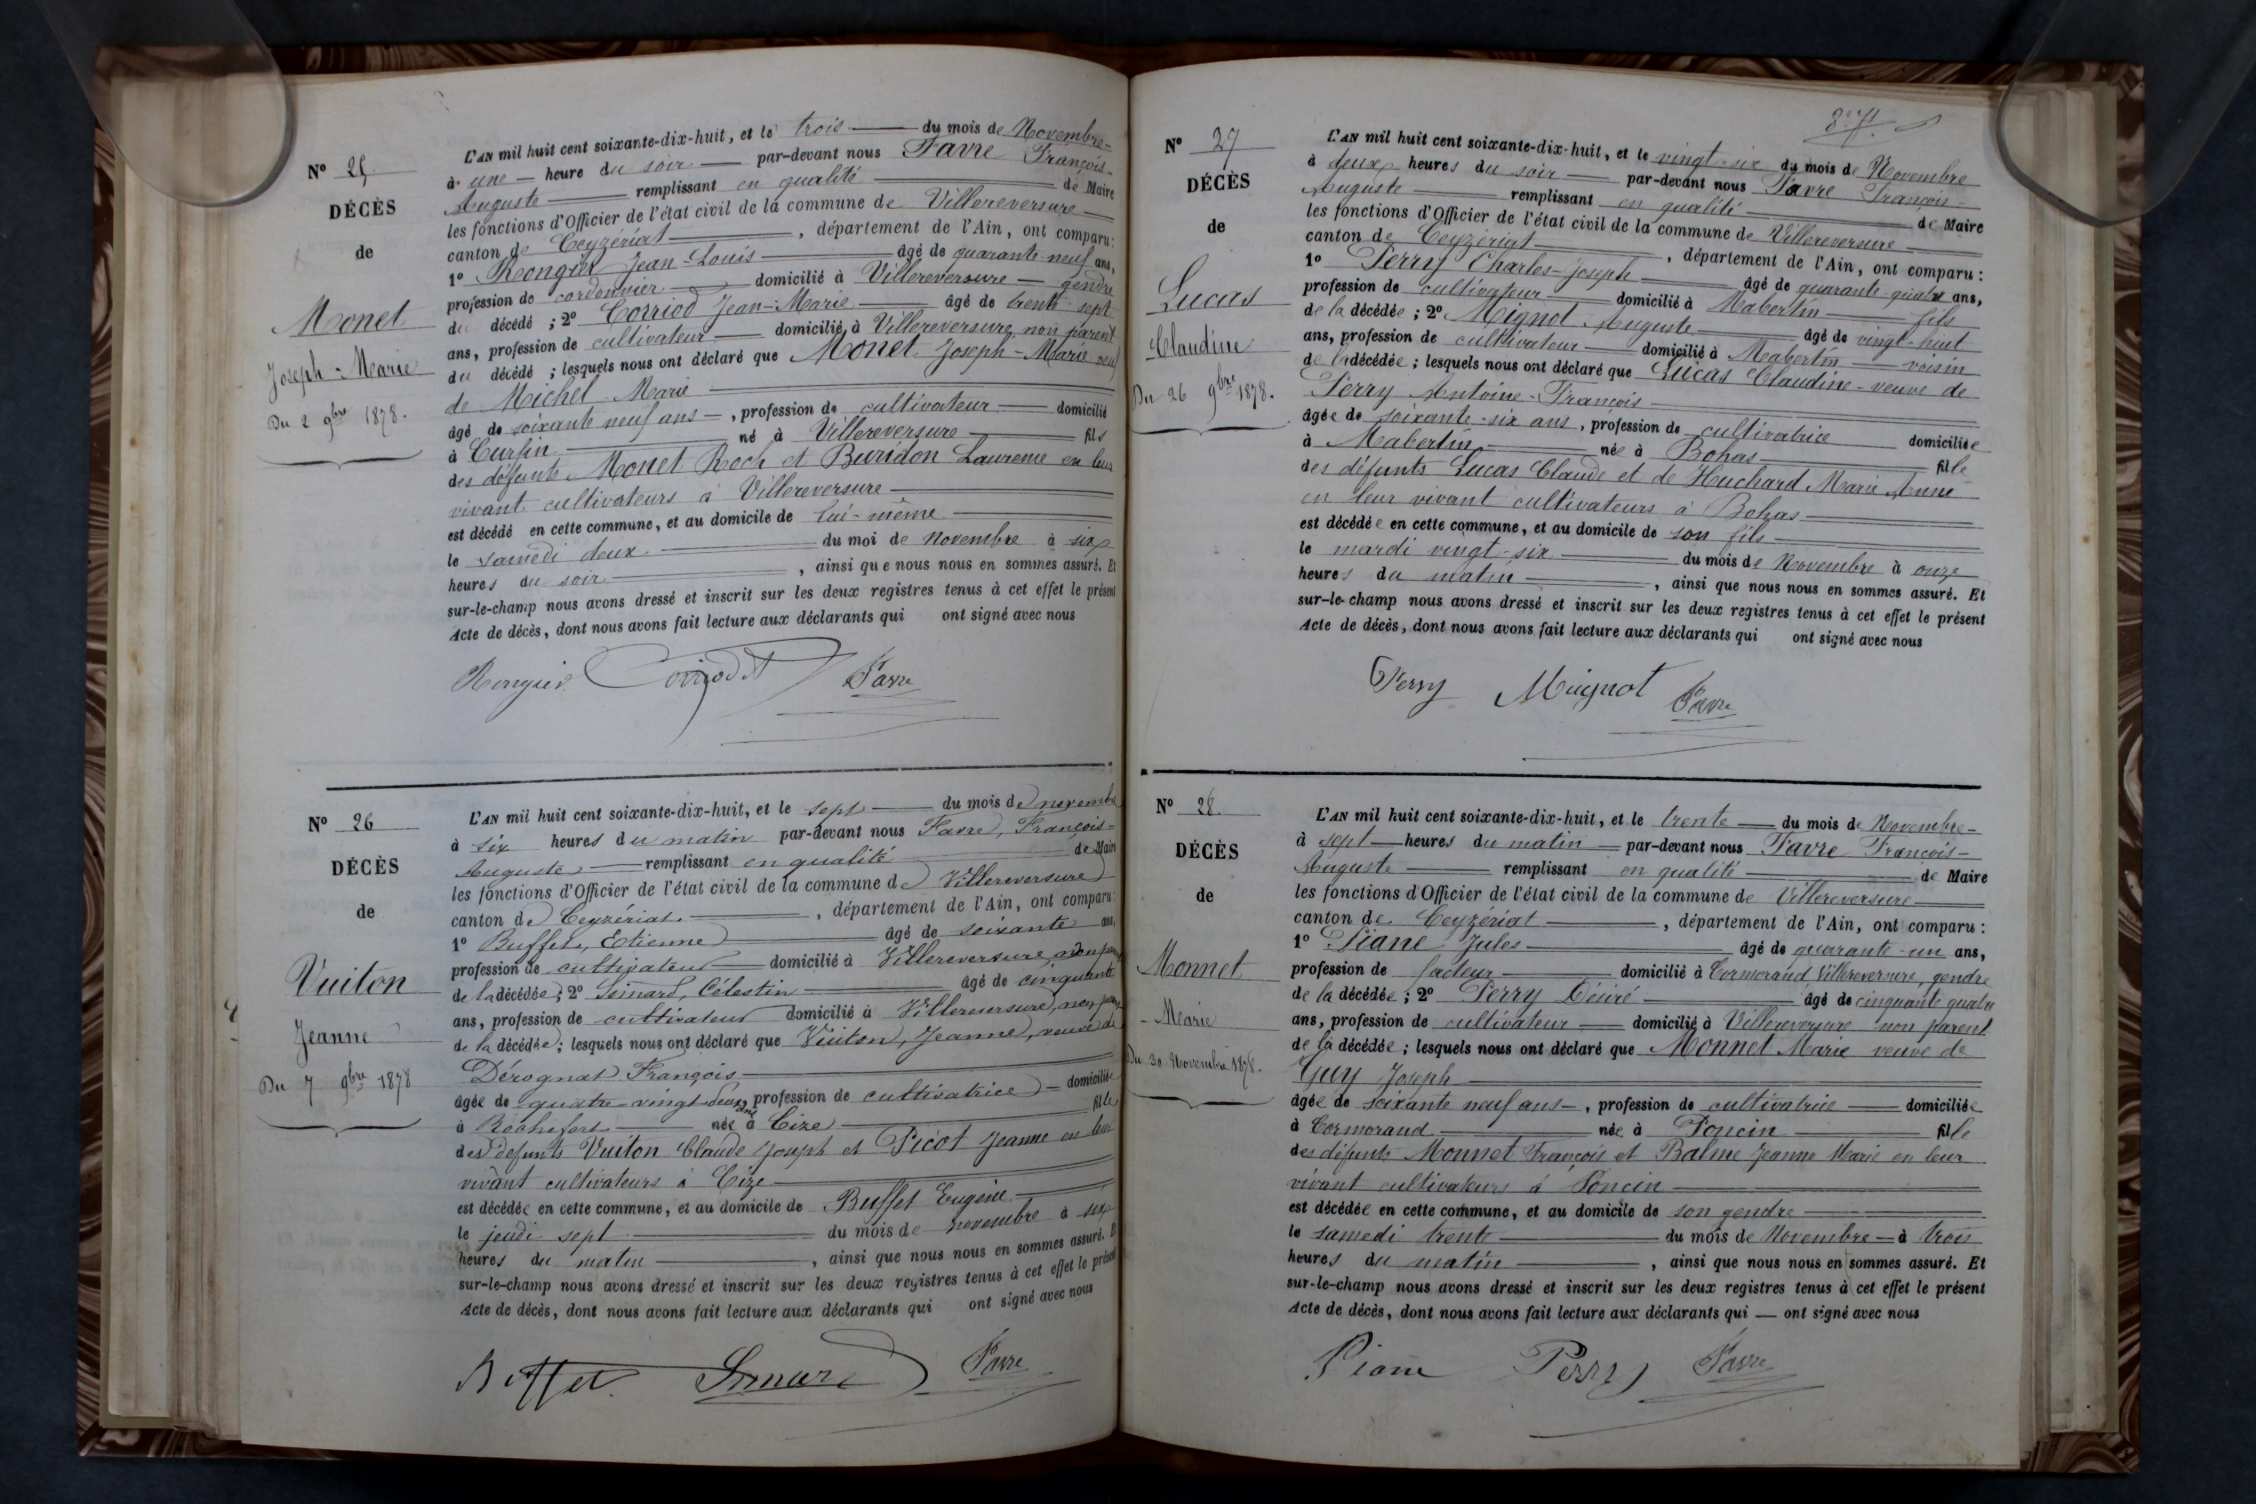 N° 25
DÉCÈS
de
Monet
Joseph-Marie
Du 2 9bre 1878.
L'AN mil huit cent soixante-dix-huit, et le trois du mois de Novembre
à une heure du soir par-devant nous Favre François-
Auguste remplissant en qualité de Maire
les fonctions d'Officier de l'état civil de la commune de Villereversure
canton de Ceyzériat, département de l'Ain, ont comparu:
1° Rongier Jean-Louis âgé de quarante-neuf ans,
profession de cordonnier domicilié à Villereversure gendre
du décédé; 2° Corriod Jean-Marie âgé de trente-sept
ans, profession de cultivateur domicilié à Villereversure non parent
du décédé; lesquels nous ont déclaré que Monet Joseph-Marie veuf
de Michel Marie
âgé de soixante neuf ans, profession de cultivateur domicilié
à Curfin né à Villereversure fils
des défunts Monet Roch et Buridon Laurence en leur
vivant cultivateurs à Villereversure
est décédé en cette commune, et au domicile de lui-même
le samedi deux du moi de Novembre à six
heures du soir, ainsi que nous nous en sommes assuré. Et
sur-le-champ nous avons dressé et inscrit sur les deux registres tenus à cet effet le présent
Acte de décès, dont nous avons fait lecture aux déclarants qui ont signé avec nous
Rongier Corriod Favre
N° 26
DÉCÈS
de
Vuiton
Jeanne
Du 7 9bre 1878
L'AN mil huit cent soixante-dix-huit, et le sept du mois de novembre
à six heures du matin par-devant nous Favre, François-
Auguste remplissant en qualité de Maire
les fonctions d'Officier de l'état civil de la commune de Villereversure
canton de Ceyzériat, département de l'Ain, ont comparu:
1° Buffet, Etienne âgé de soixante ans,
profession de cultivateur domicilié à Villereversure, non parent
de la décédée; 2° Simard, Célestin âgé de cinquante
ans, profession de cultivateur domicilié à Villereversure, non parent
de la décédée; lesquels nous ont déclaré que Vuiton, Jeanne, veuve de
Dérognat François
âgée de quatre-vingt-deux ans, profession de cultivatrice domiciliée
à Rochefort née à Cize fille
des défunts Vuiton Claude Joseph et Picot Jeanne en leur
vivant cultivateurs à Cize
est décédée en cette commune, et au domicile de Buffet Eugène
le jeudi sept du mois de novembre à six
heures du matin, ainsi que nous nous en sommes assuré. Et
sur-le-champ nous avons dressé et inscrit sur les deux registres tenus à cet effet le présent
Acte de décès, dont nous avons fait lecture aux déclarants qui ont signé avec nous
Buffet Simard Favre
N° 27
DÉCÈS
de
Lucas
Claudine
Du 26 9bre 1878.
L'AN mil huit cent soixante-dix-huit, et le vingt-six du mois de Novembre
à deux heures du soir par-devant nous Favre François-
Auguste remplissant en qualité de Maire
les fonctions d'Officier de l'état civil de la commune de Villereversure
canton de Ceyzériat, département de l'Ain, ont comparu:
1° Perry Charles-Joseph âgé de quarante-quatre ans,
profession de cultivateur domicilié à Mabertin fils
de la décédée; 2° Mignot Auguste âgé de vingt-huit
ans, profession de cultivateur domicilié à Mabertin voisin
de la décédée; lesquels nous ont déclaré que Lucas Claudine veuve de
Perry Antoine-François
âgée de soixante-six ans, profession de cultivatrice domiciliée
à Mabertin née à Bohas fille
des défunts Lucas Claude et de Huchard Marie Anne
en leur vivant cultivateurs à Bohas
est décédée en cette commune, et au domicile de son fils
le mardi vingt-six du mois de Novembre à onze
heures du matin, ainsi que nous nous en sommes assuré. Et
sur-le-champ nous avons dressé et inscrit sur les deux registres tenus à cet effet le présent
Acte de décès, dont nous avons fait lecture aux déclarants qui ont signé avec nous
Perry Mignot Favre
N° 28
DÉCÈS
de
Monnet
Marie
Du 30 Novembre 1878.
L'AN mil huit cent soixante-dix-huit, et le trente du mois de Novembre
à sept heures du matin par-devant nous Favre François-
Auguste remplissant en qualité de Maire
les fonctions d'Officier de l'état civil de la commune de Villereversure
canton de Ceyzériat, département de l'Ain, ont comparu:
1° Piane Jules âgé de quarante-un ans,
profession de facteur domicilié à Cormorand Villereversure, gendre
de la décédée; 2° Perry Désiré âgé de cinquante quatre
ans, profession de cultivateur domicilié à Villereversure non parent
de la décédée; lesquels nous ont déclaré que Monnet Marie veuve de
Guy Joseph
âgée de soixante neuf ans, profession de cultivatrice domiciliée
à Cormorand née à Poncin fille
des défunts Monnet François et Balme Jeanne Marie en leur
vivant cultivateurs à Poncin
est décédée en cette commune, et au domicile de son gendre
le samedi trente du mois de Novembre à trois
heures du matin, ainsi que nous nous en sommes assuré. Et
sur-le-champ nous avons dressé et inscrit sur les deux registres tenus à cet effet le présent
Acte de décès, dont nous avons fait lecture aux déclarants qui ont signé avec nous
Piane Perry Favre